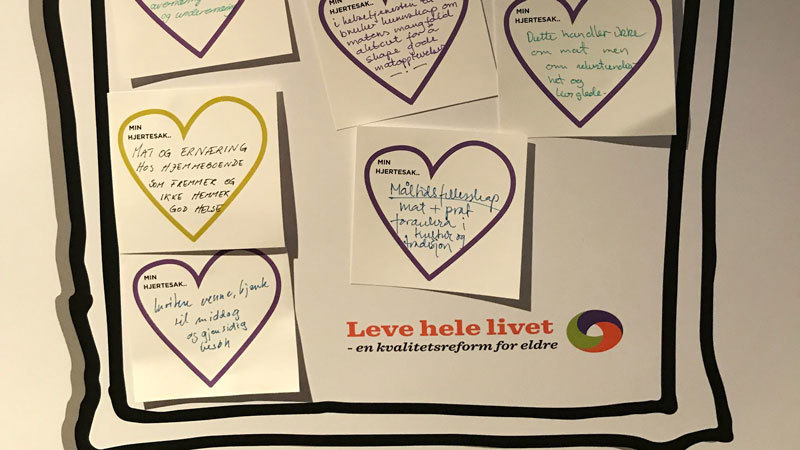 og underernæring
i helsetjenesten til
bruker kunnskap om
matens mangfold
aktivt for å
skape gode
matopplevelser
Dette handler ikke
om mat men
om
het og
livsglede.
MIN
HJERTESAK..
MAT OG ERNÆRING
HOS HJEMMEBOENDE
SOM FREMMER OG
IKKE HEMMER
GOD HELSE
MIN
HJERTESAK..
Måltidsfellesskap
mat + prat
forankra i
kultur og
tradisjon
MIN
HJERTESAK..
Invitere venne,
til middag
og gjensidig
besøk
Leve hele livet
- en kvalitetsreform for eldre